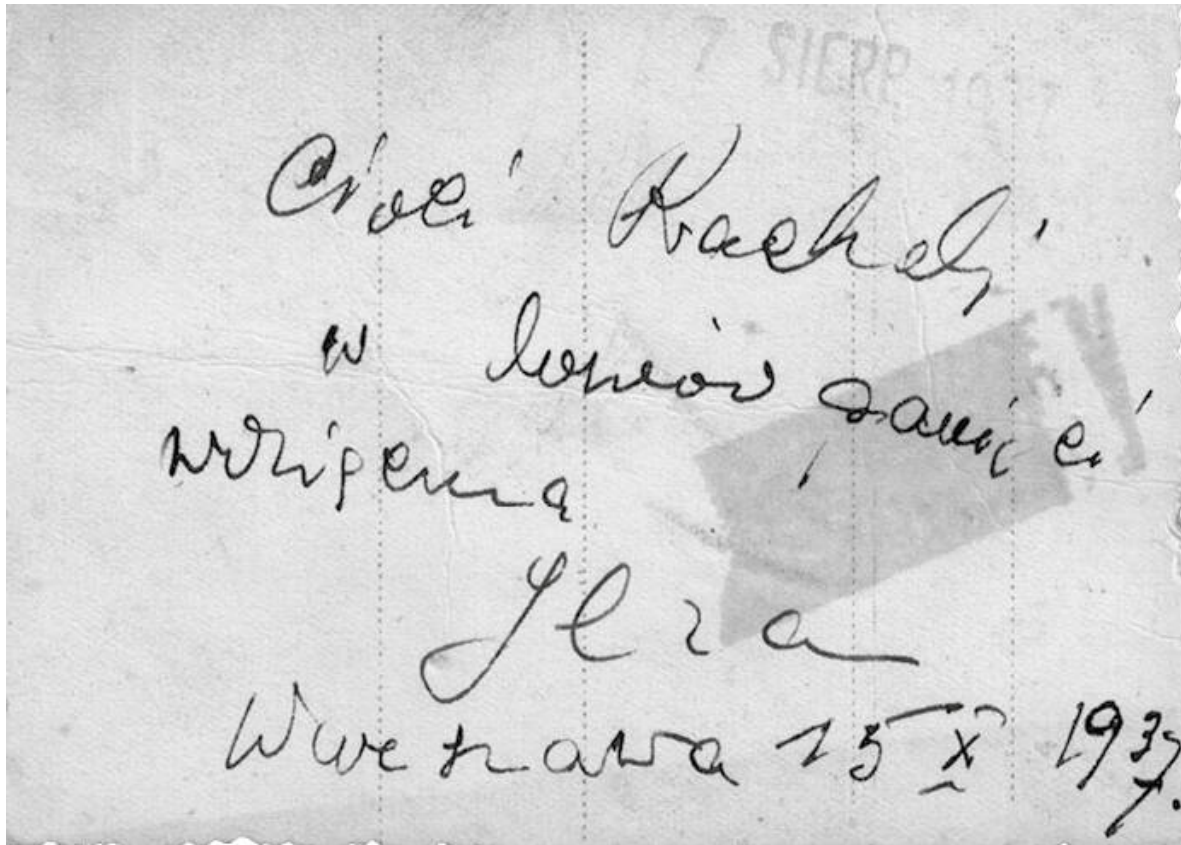 7 SIERP. 1937
Cioci Racheli
w dowód pamięci
wdzięczna
Ilza
Warszawa 15 X 1937